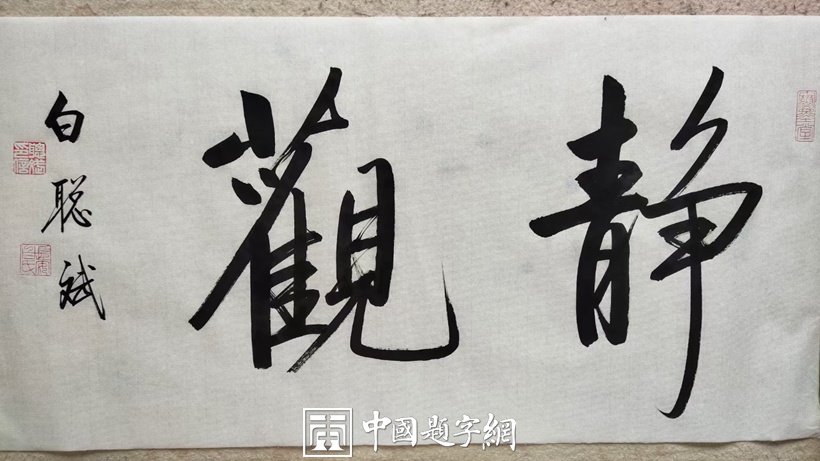 静觀
白聪斌
中國題字網